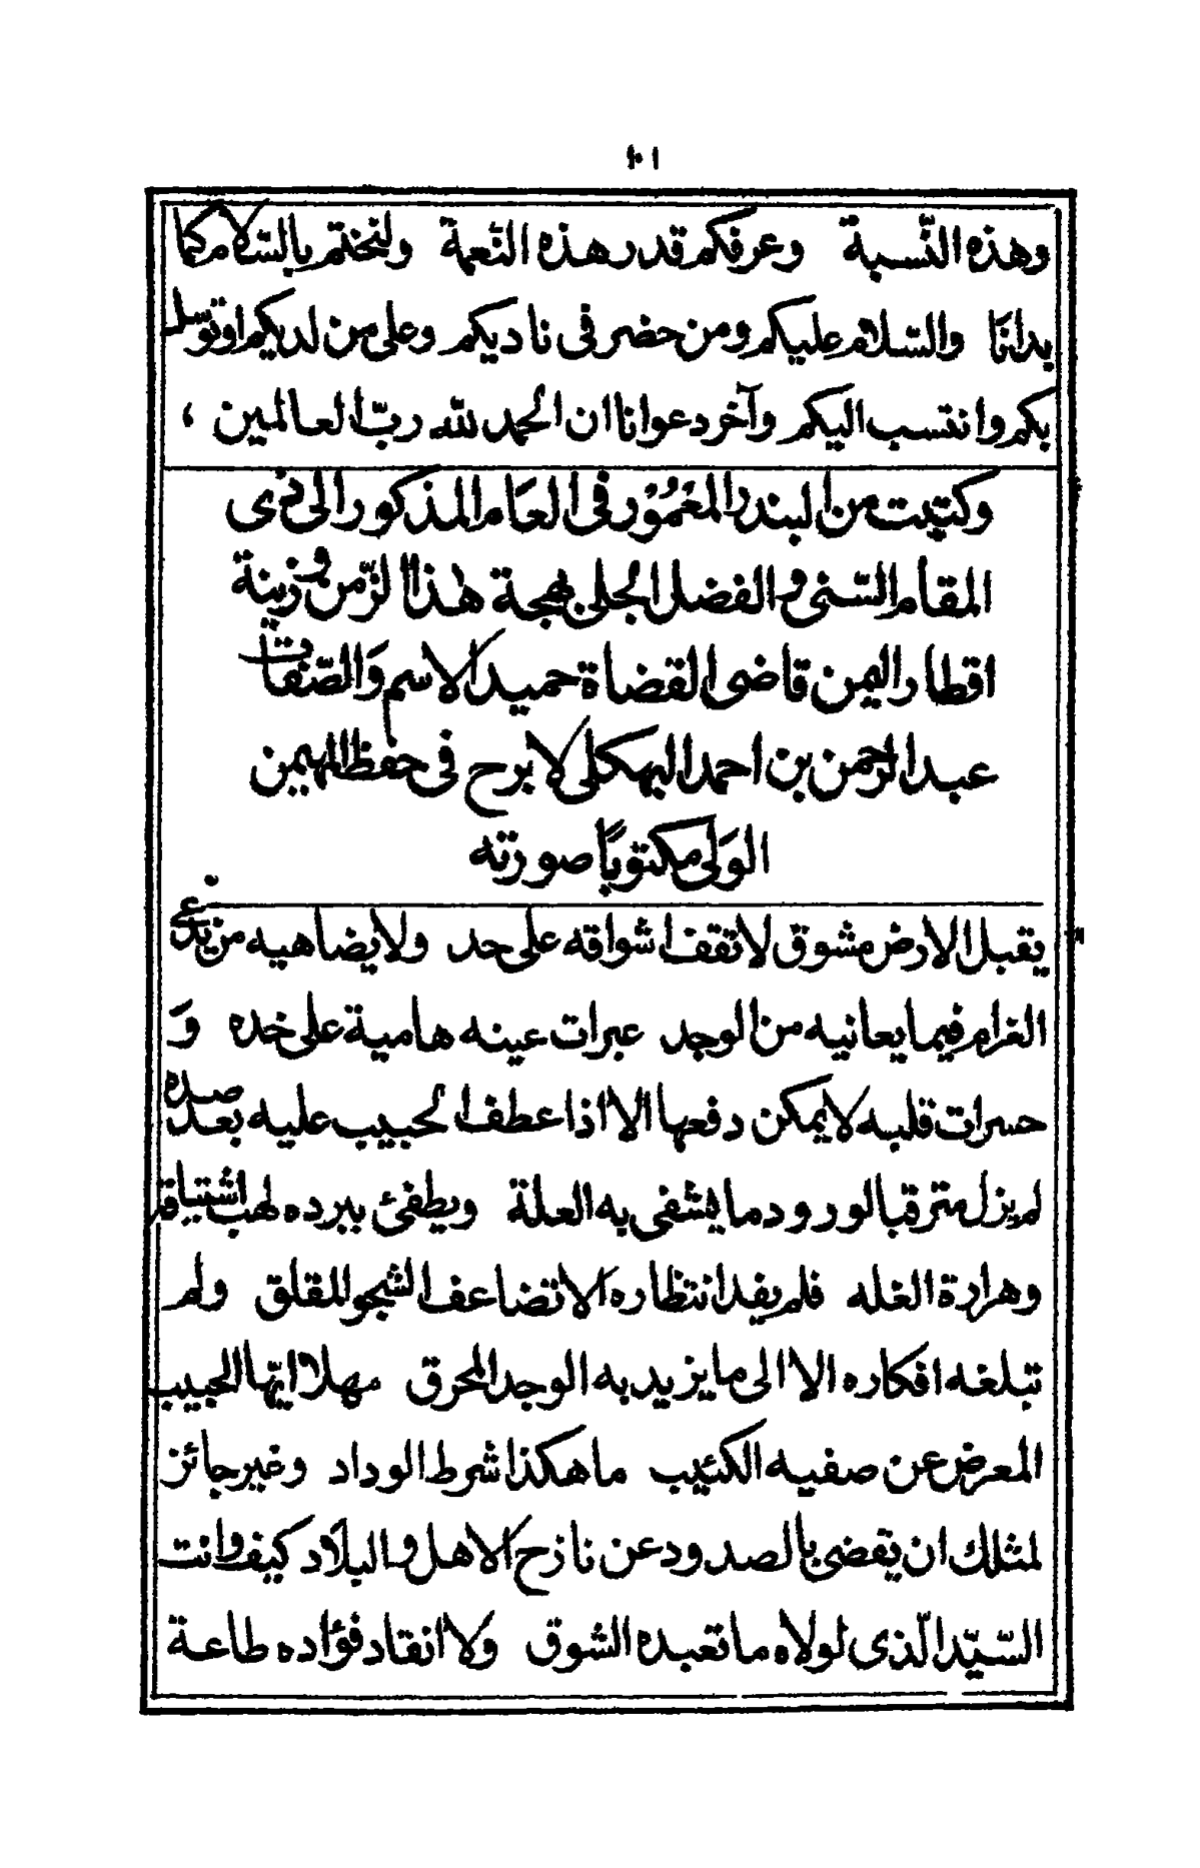 ١٠١
وهذه النّسبة وعرفكم قدر هذه النّعمة ولنختم بالسّلام كما
بدانا والسّلام عليكم ومن حضر فى ناديكم وعلى من لديكم او توسّل
بكم وانتسب اليكم وآخر دعوانا ان الحمد لله ربّ العالمين ،
وكتبت من البندر المَعْمُوْر فى العَام المذكور الى ذى
المقام السّنى والفضل الجلى بهجة هٰذا الزّمن وزينة
اقطار اليمن قاضى القضاة حميد الاسم وَالصّفات
عبد الرحمن بن احمد البهكلى لا برح فى حفظ المهيمن
الوَلى مكتوبًا صورته
يقبل الارض مشوق لا تقف اشواقه على حد ولا يضاهيه من يدّعى
الغرام فيما يعانيه من الوجد عبرات عينه هامية على خده وَ
حسرات قلبه لا يمكن دفعها الا اذا عطف الحبيب عليه بعد صده
لم يزل مترقبا لورود ما يشفى به العلة ويطفئ ببرده لهب اشتياقه
وحرارة الغله فلم يفد انتظاره الا تضاعف الشجو المقلق ولم
تبلغه افكاره الا الى ما يزيد به الوجد المحرق مهلا ايّها الحبيب
المعرض عن صفيه الكئيب ما هكذا شرط الوداد وغير جائز
لمثلك ان يقضى بالصدود عن نازح الاهل والبلاد كيف وانت
السّيّد الّذى لولاه ما تعبده الشوق ولا انقاد فؤاده طاعة